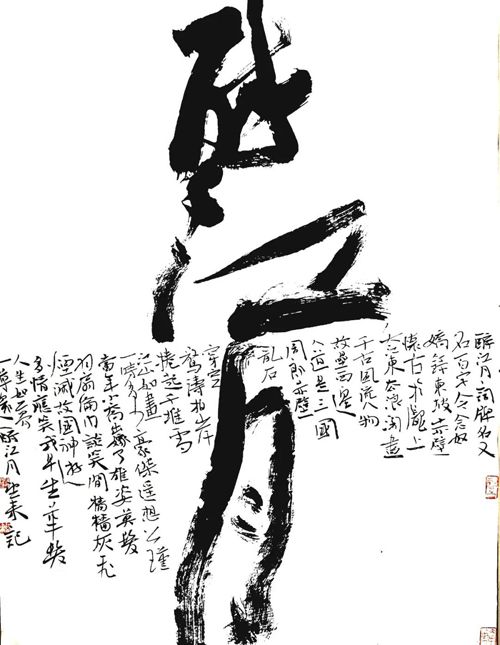 酹江月
酹江月詞牌名又
名百字令念奴
嬌蘇東坡赤壁
懷古
東去浪淘盡
千古風流人物
故壘西邊
人道是三國
周郎赤壁
亂石
穿空
驚濤拍岸
捲起千堆雪
江山如畫
一時多少豪傑遥想公瑾
當年小喬嫁了雄姿英發
羽扇綸巾談笑間檣櫓灰飛
煙滅故國神遊
多情應笑我早生華髮
人生如夢
一尊還酹江月 記